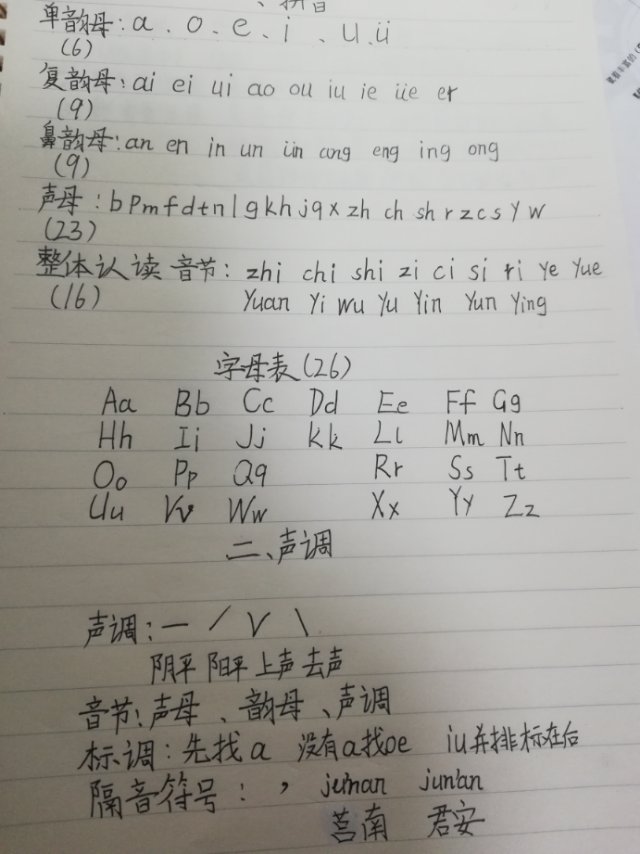 、拼音
单韵母：a、o、e、i、u、ü
(6)
复韵母：ai ei ui ao ou iu ie üe er
(9)
鼻韵母：an en in un ün ang eng ing ong
(9)
声母：b p m f d t n l g k h j q x zh ch sh r z c s y w
(23)
整体认读音节：zhi chi shi zi ci si ri ye yue
(16) yuan yi wu yu yin yun ying
字母表(26)
Aa Bb Cc Dd Ee Ff Gg
Hh Ii Jj Kk Ll Mm Nn
Oo Pp Qq Rr Ss Tt
Uu Vv Ww Xx Yy Zz
二、声调
声调：一 ╱ V ╲
阴平 阳平 上声 去声
音节：声母、韵母、声调
标调：先找a 没有a找oe iu并排标在后
隔音符号：， ju'nan jun'an
莒南 君安